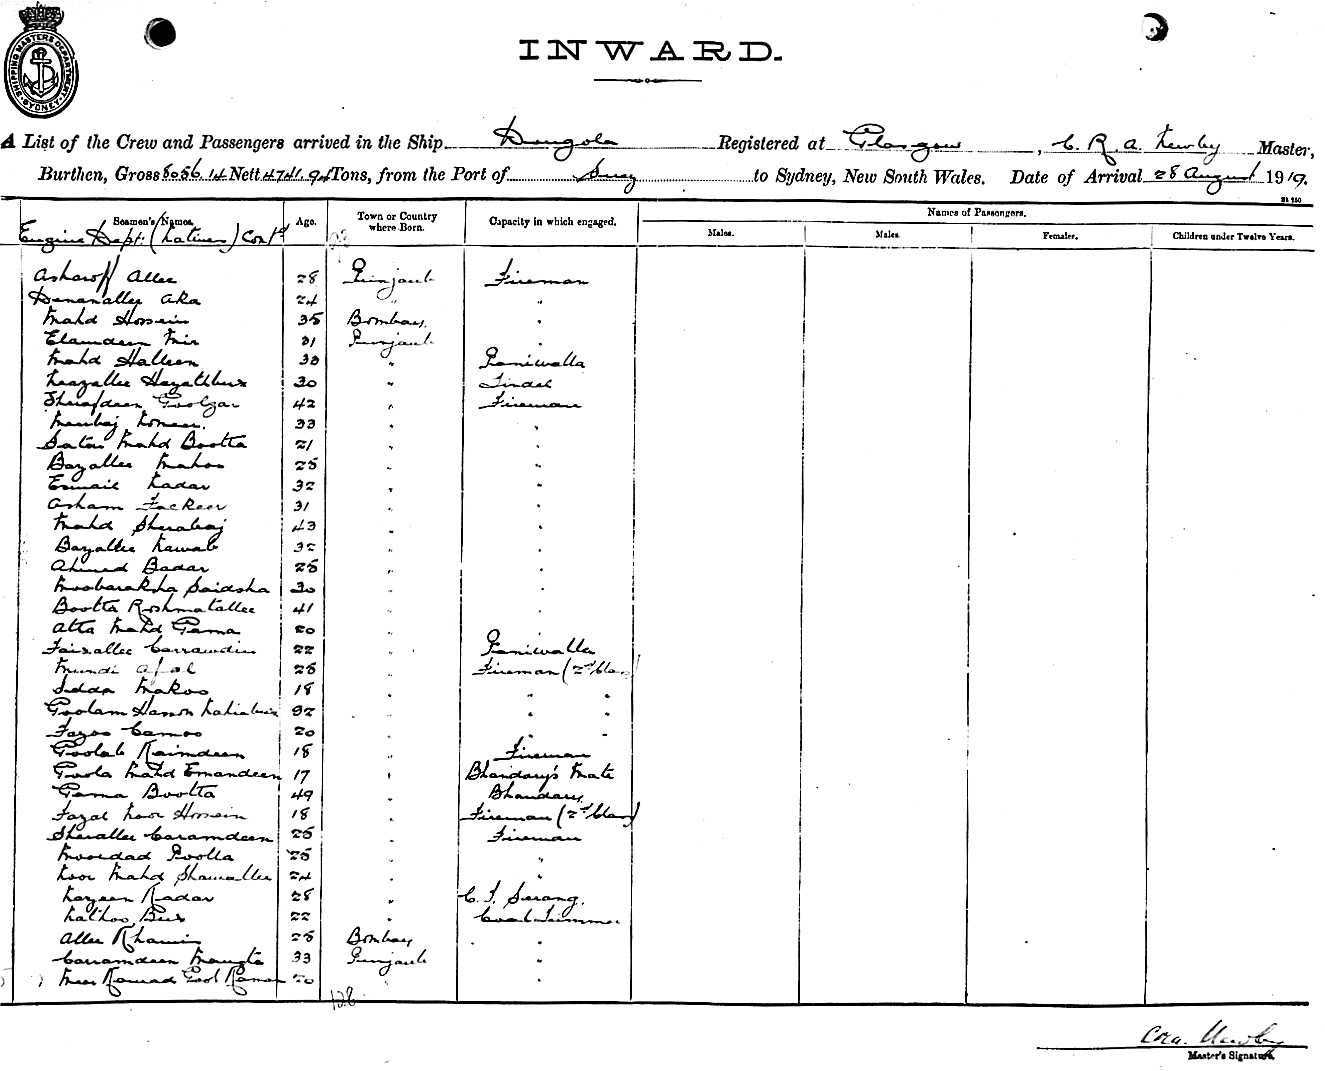 SHIPPING MASTERS DEPARTMENT SYDNEY
INWARD.
A List of the Crew and Passengers arrived in the Ship Dongola Registered at Glasgow, C. R. A. Newby Master,
Burthen, Gross 8056.14 Nett 4741.94 Tons, from the Port of Suez to Sydney, New South Wales. Date of Arrival 28 August 1919.
Seamen's Names. Age. Town or Country where Born. Capacity in which engaged. Names of Passengers.
Males. Males. Females. Children under Twelve Years.
Engine Dept. (Natives) Cont'd
Asharoff Allee 28 Punjaub Fireman
Aka 24 " "
Mahd Hossein 35 Bombay "
Elamdeen Mir 31 Punjaub "
Mahd Halleen 30 " Paniwalla
Hayatbux 30 " Tindel
Sherafdeen Goolzar 42 " Fireman
33 " "
Mahd Bootta 21 " "
Bazallee 25 " "
Esmail Kadar 32 " "
Asham Fackeer 31 " "
Mahd Sherabaj 43 " "
Bazallee Nawab 32 " "
Ahmed Badar 25 " "
Moobaraksha Saidsha 30 " "
Bootta Roshmatallee 41 " "
Atta Mahd Gama 20 " "
Faizallee Carramdin 22 " Paniwalla
Mundi 25 " Fireman (2nd Class)
18 " " "
Goolam Hasson 32 " " "
Fazoo 20 " " "
Goolab Kaimdeen 18 " Fireman
Goola Mahd Emamdeen 17 " Bhandary's Mate
Gama Bootta 49 " Bhandary
Fazal Noor Hossein 18 " Fireman (2nd Class)
Sherallee Caramdeen 25 " Fireman
Moordad Goolla 25 " "
Noor Mahd Shamallee 24 " "
Kadar 28 " C. T. Serang.
Nathoo Bux 22 " Coal Trimmer
Allee 25 Bombay "
Carramdeen 33 Punjaub "
Gool 20 "
128
C R A. Newby
Master's Signature.